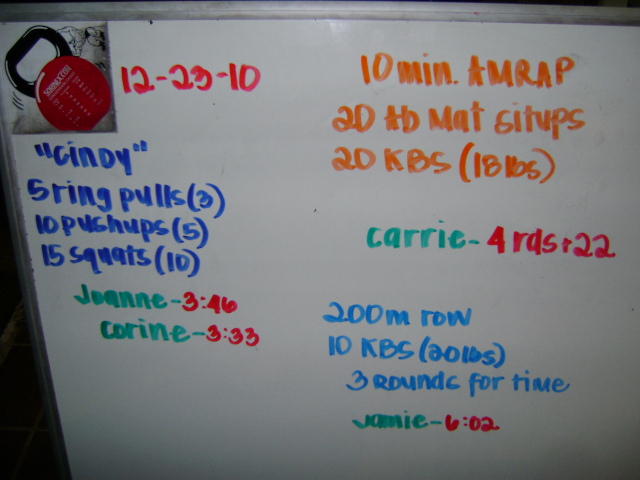 12-23-10
"Cindy"
5 ring pulls (3)
10 pushups (5)
15 squats (10)
Joanne - 3:46
Corine - 3:33
10 min. AMRAP
20 Ab Mat situps
20 KBS (18 lbs)
Carrie - 4 rds + 22
200m row
10 KBS (20 lbs)
3 Rounds for time
Jamie - 6:02